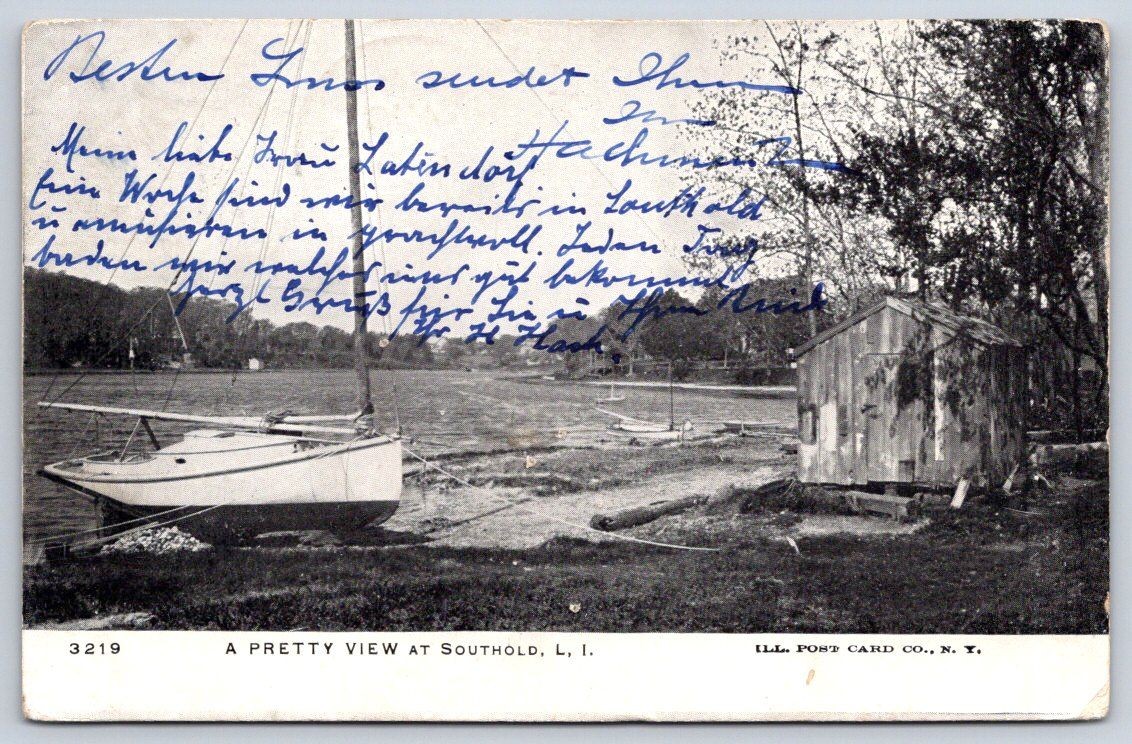 Besten Gruss sendet Ihnen
Im
Meine liebe Frau Latendorf
Eine Woche sind wir bereits in Southold
u amüsieren uns prachtvoll. Jeden Tag
baden wir welches uns gut bekommt
Herzl Gruß für Sie u Ihren
Fr H
3219
A PRETTY VIEW AT SOUTHOLD, L, I.
ILL. POST CARD CO., N. Y.